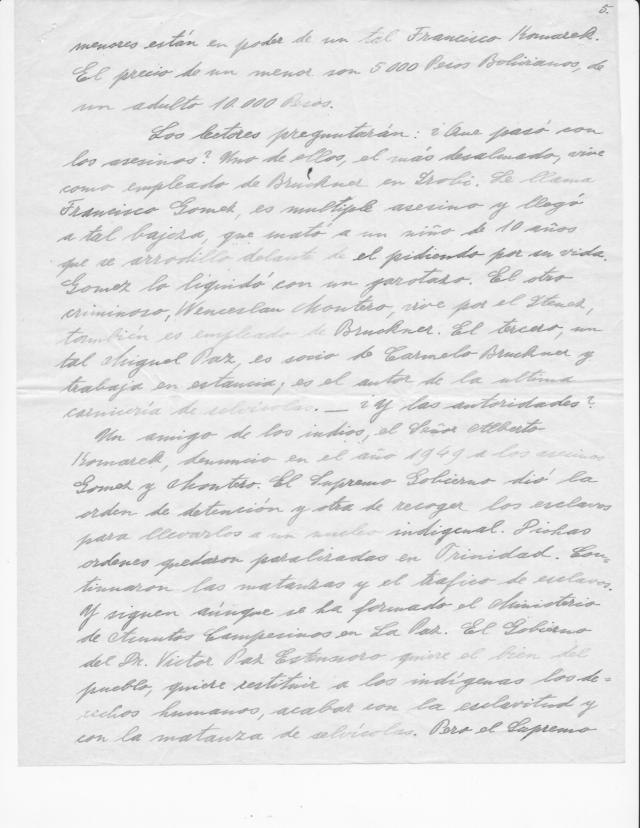 5.
menores están en poder de un tal Francisco Komarek.
El precio de un menor son 5000 Pesos Bolivianos, de
un adulto 10.000 Pesos.
Los lectores preguntarán: ¿Que pasó con
los asesinos? Uno de ellos, el más desalmado, vive
como empleado de Bruckner en Irobi. Se llama
Francisco Gomez, es multiple asesino y llegó
a tal bajeza, que mató a un niño de 10 años
que se arrodilló delante de el pidiendo por su vida.
Gomez lo liquidó con un garotazo. El otro
criminoso, Wenceslau Montero, vive por el Itenez,
también es empleado de Bruckner. El tercero, un
tal Miguel Paz, es socio de Carmelo Bruckner y
trabaja en estancia, es el autor de la ultima
carnicería de selvícolas. — ¿Y las autoridades?
Un amigo de los indios, el Señor Alberto
Komarek, denuncio en el año 1949 a los asesinos
Gomez y Montero. El Supremo Gobierno dió la
orden de detención y otra de recoger los esclavos
para llevarlos a un nucleo indigenal. Dichas
ordenes quedaron paralizadas en Trinidad. Con-
tinuaron las matanzas y el trafico de esclavos.
Y siguen aúnque se ha formado el Ministerio
de Asuntos Campesinos en La Paz. El Gobierno
del Dr. Victor Paz Estensoro quiere el bien del
pueblo, quiere restituir a los indígenas los de=
rechos humanos, acabar con la esclavitud y
con la matanza de selvícolas. Pero el Supremo